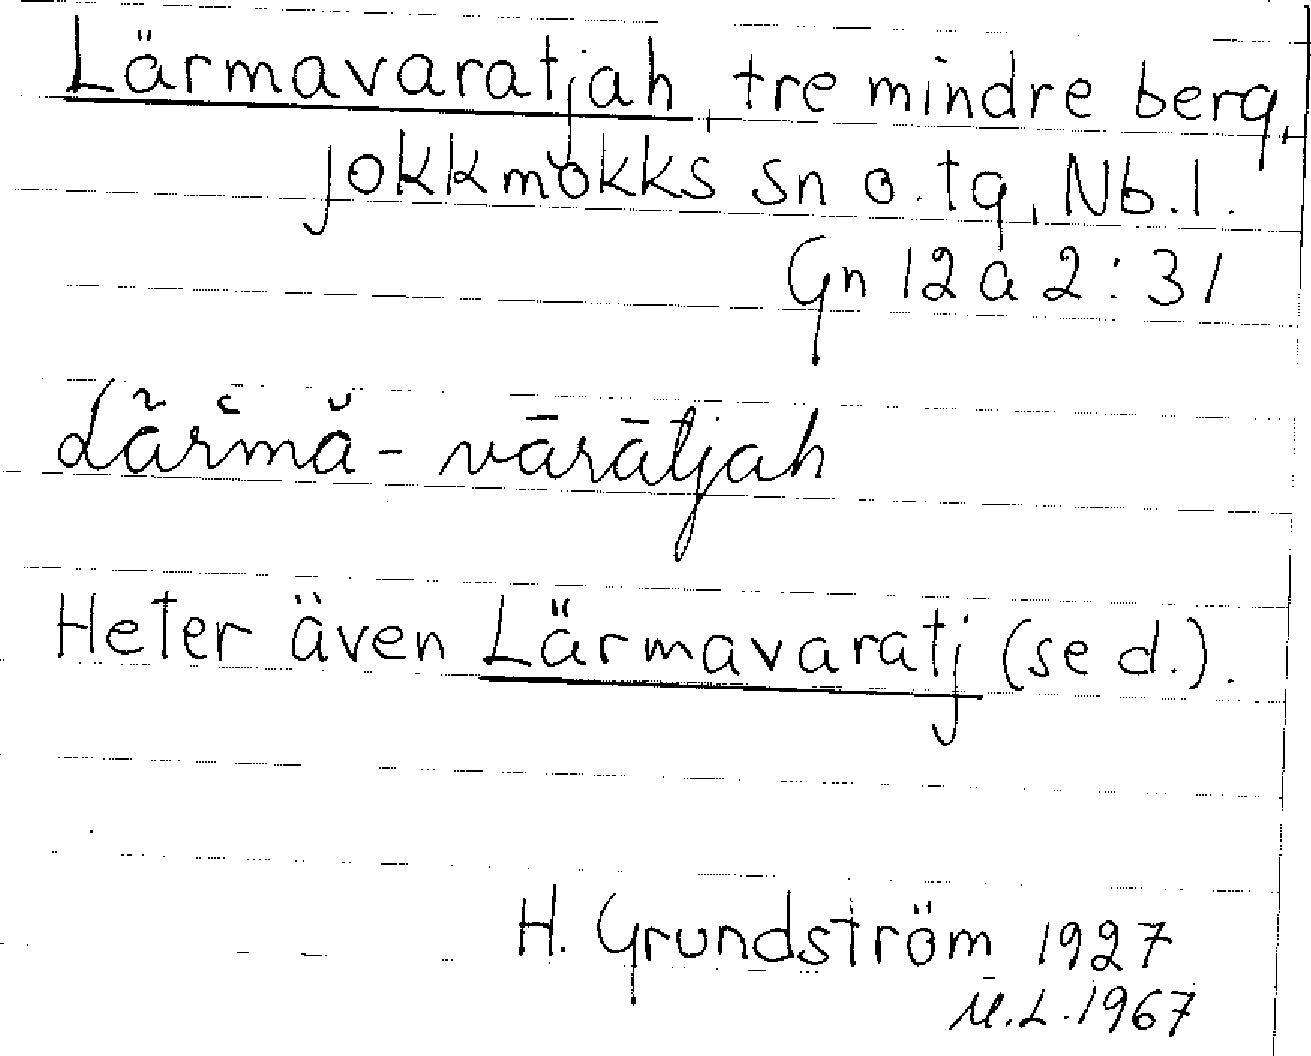 Lärmavaratjah, tre mindre berg,
Jokkmokks sn o. tg, Nb. l.
Gn 12 a 2:31
Lärmă-vārātjah
Heter även Lärmavaratj (se d.).
H. Grundström 1927
M.L. 1967